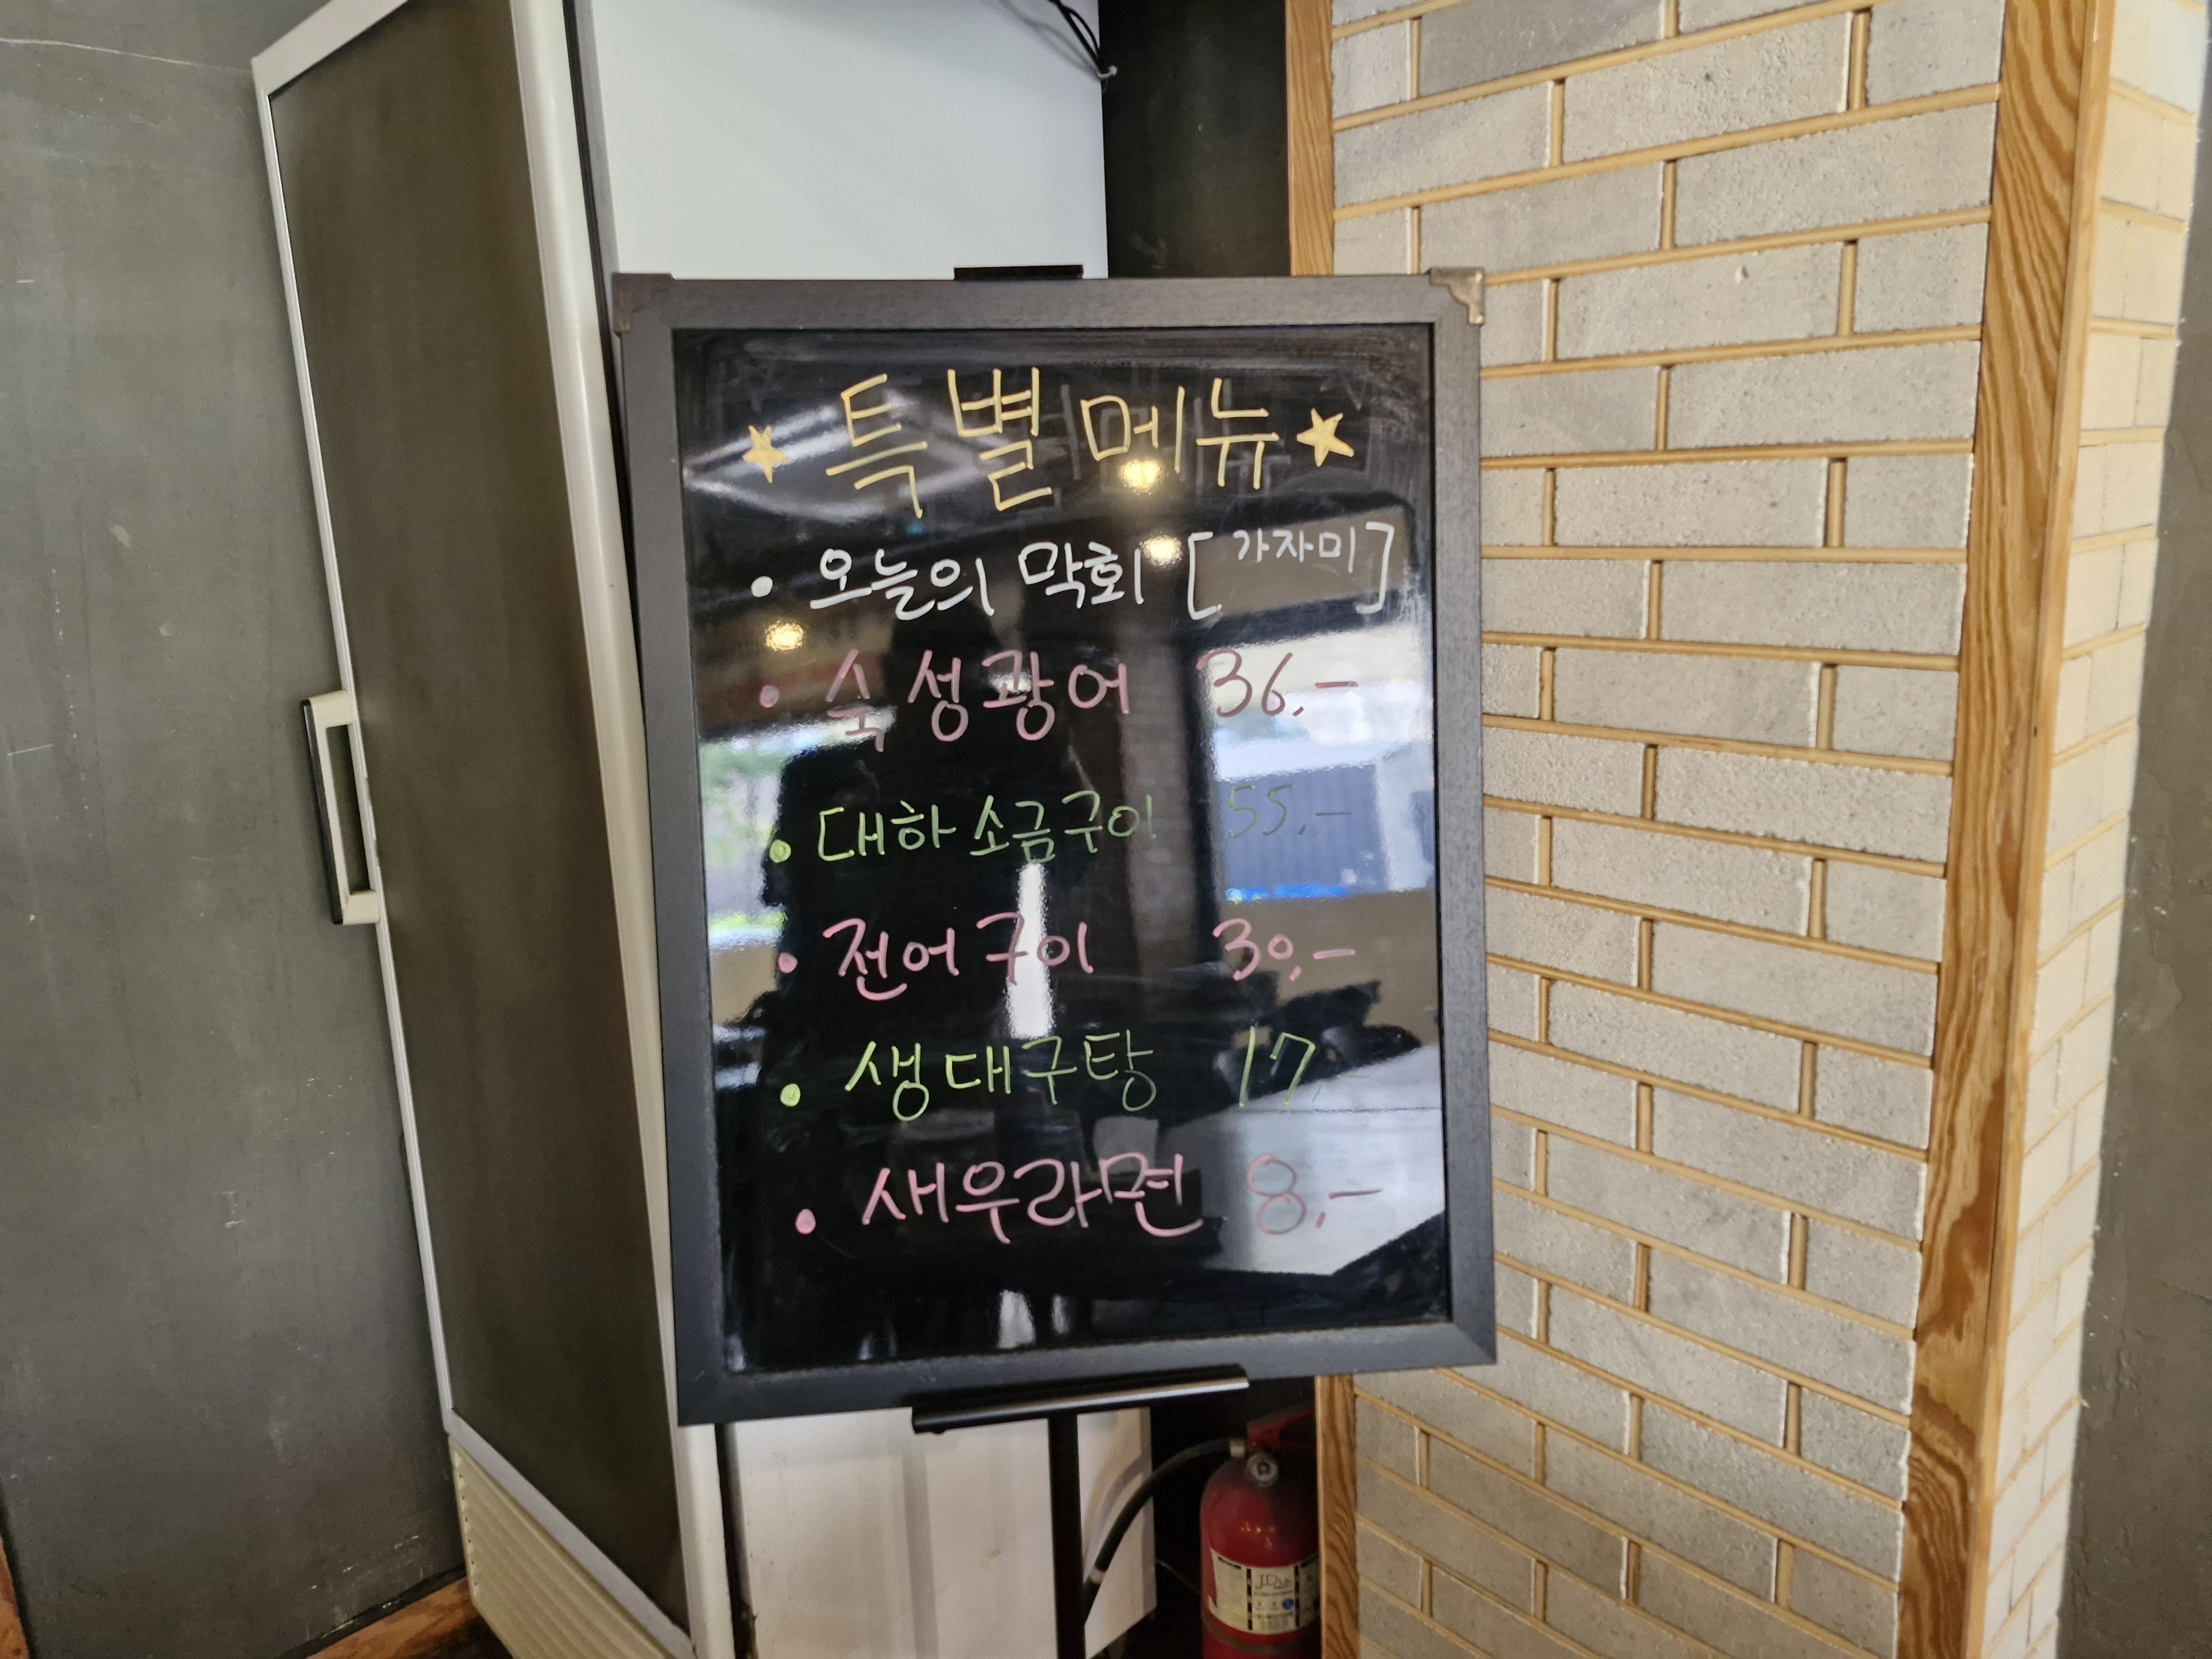 ★ 특별메뉴 ★
• 오늘의 막회 [가자미]
• 숙성광어 36,-
• 대하 소금구이 55,-
• 전어구이 30,-
• 생대구탕 17,-
• 새우라면 8,-